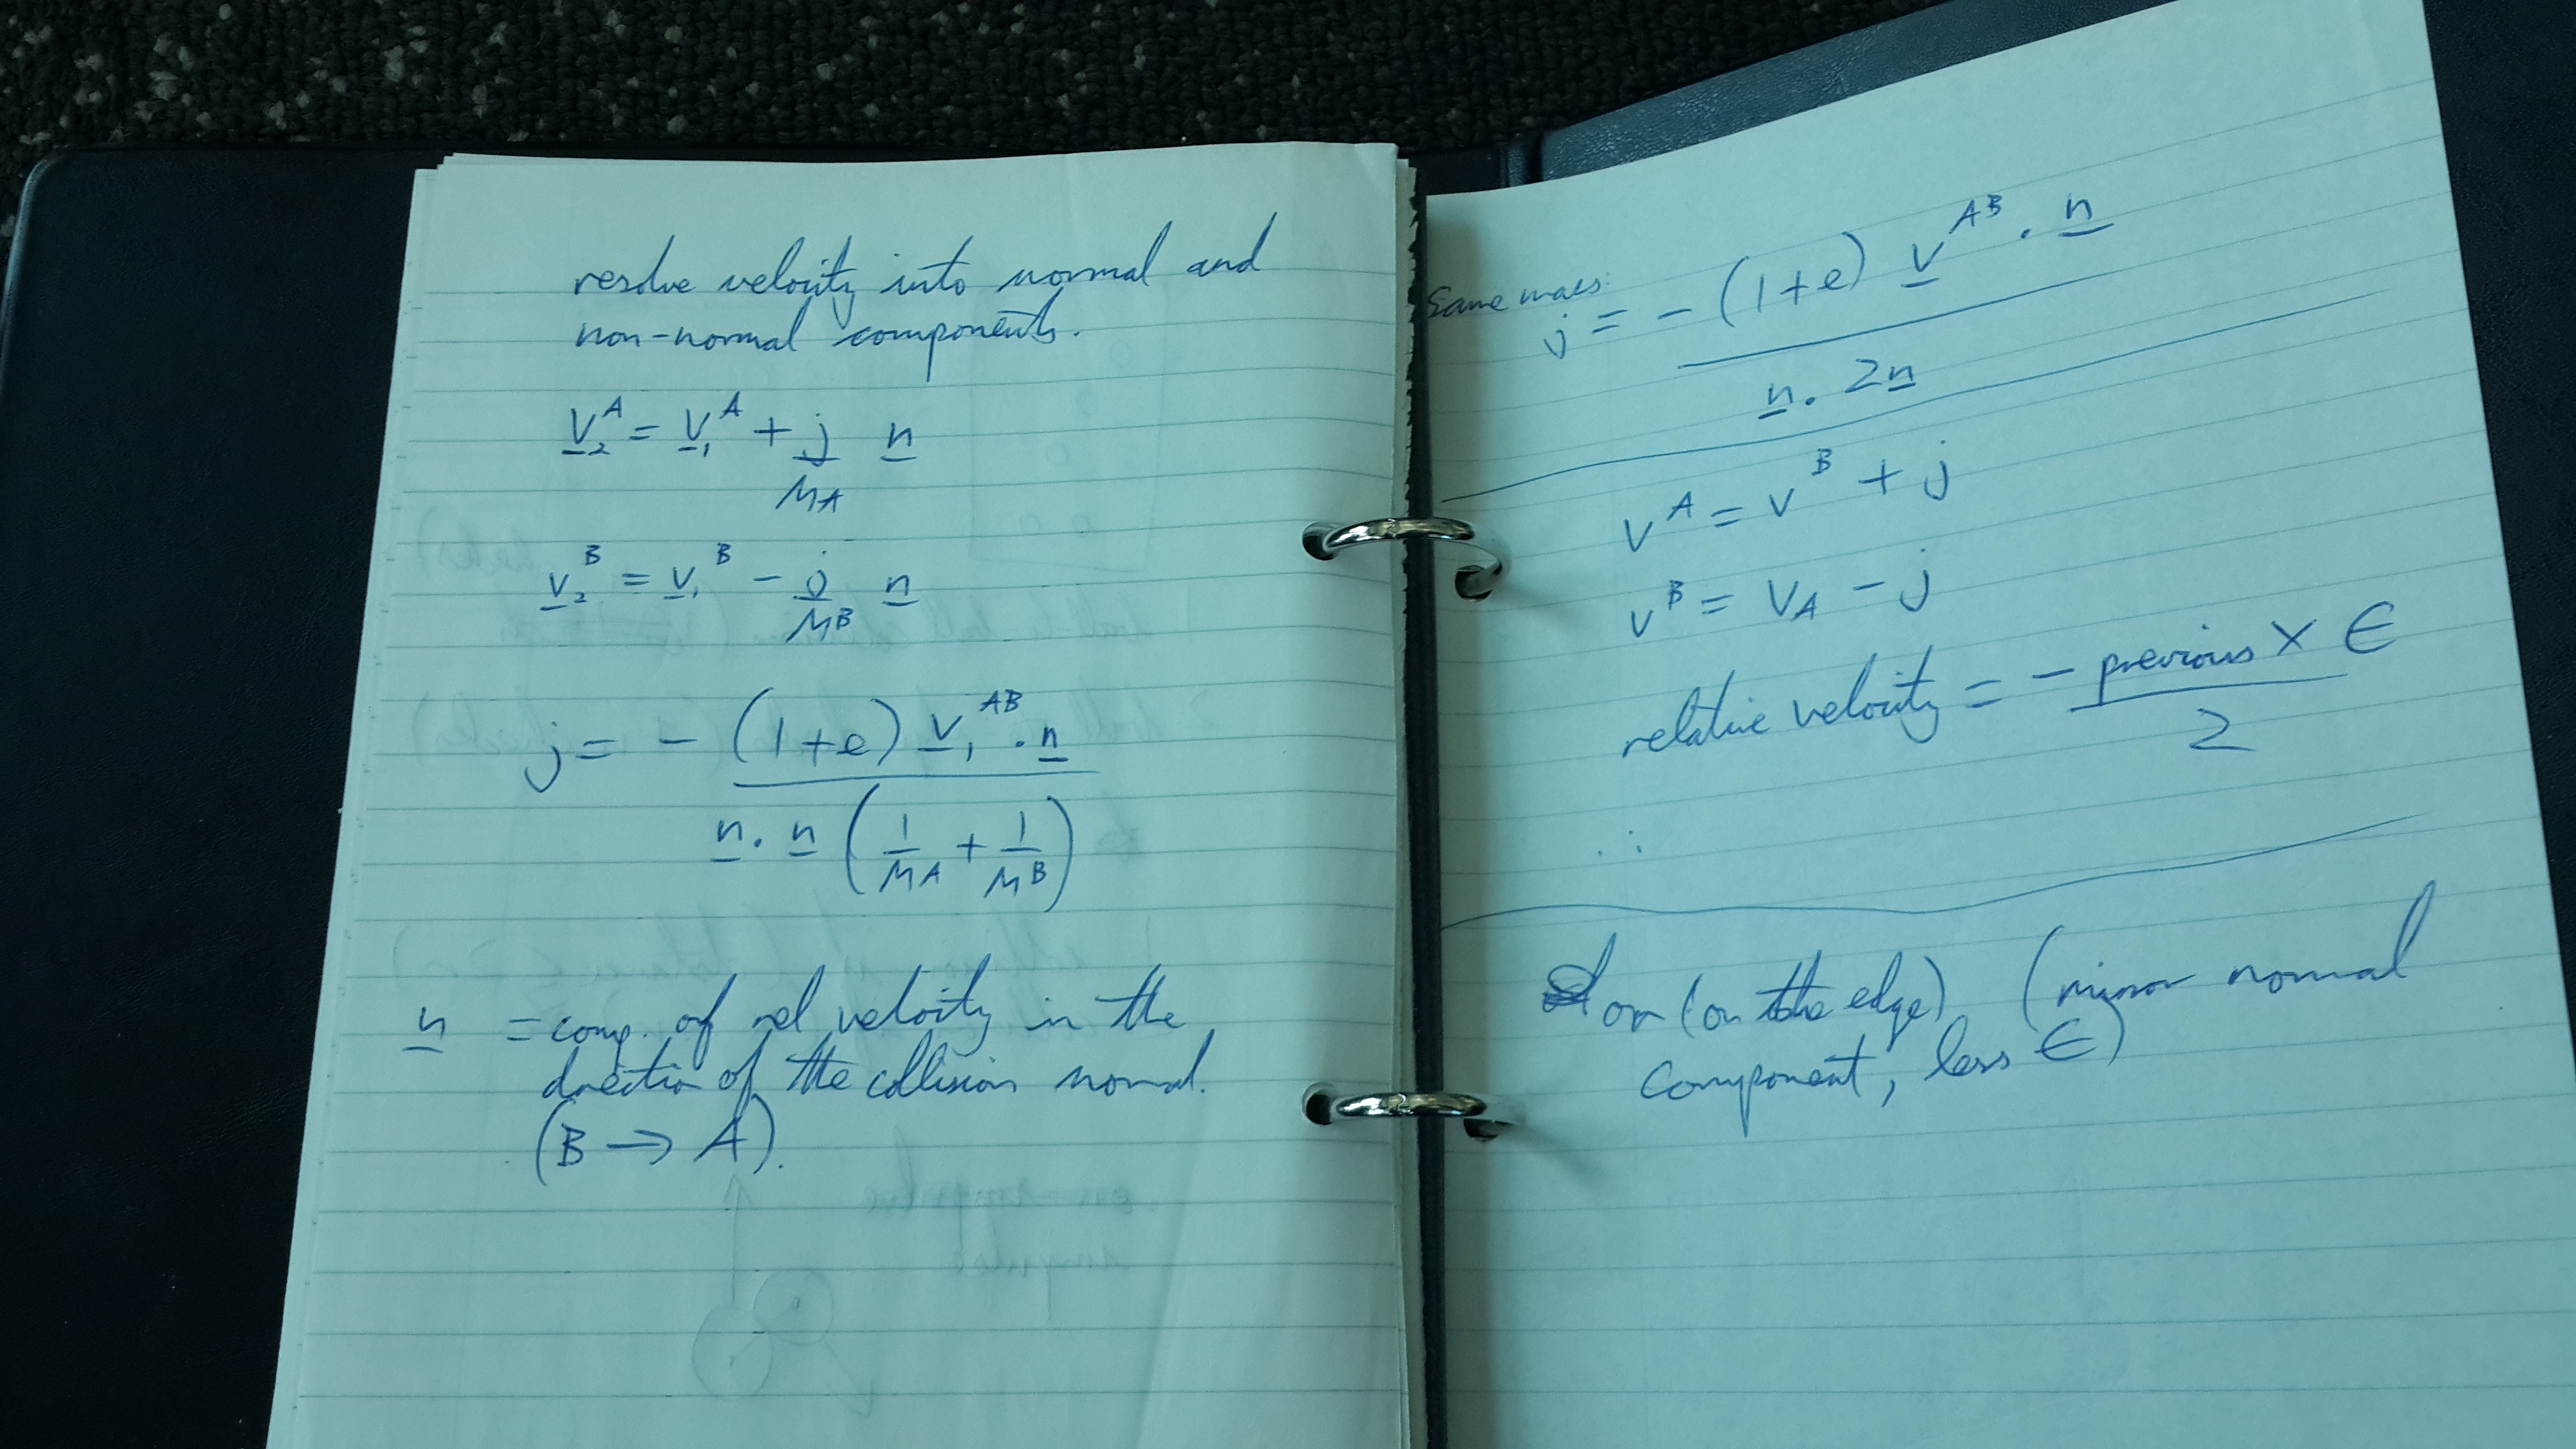 resolve velocity into normal and
non-normal components.
v₂ᴬ = v₁ᴬ + j/Mᴀ n
v₂ᴮ = v₁ᴮ - j/Mᴮ n
j = - (1+e) v₁ᴬᴮ . n
n . n (1/Mᴀ + 1/Mᴮ)
n = comp. of rel velocity in the
direction of the collision normal.
(B → A).
Same mass:
j = - (1+e) vᴬᴮ . n
n . 2n
vᴬ = vᴮ + j
vᴮ = vᴀ - j
relative velocity = - previous × ∈
2
∴
or (on the edge) (minor normal
component, less ∈)